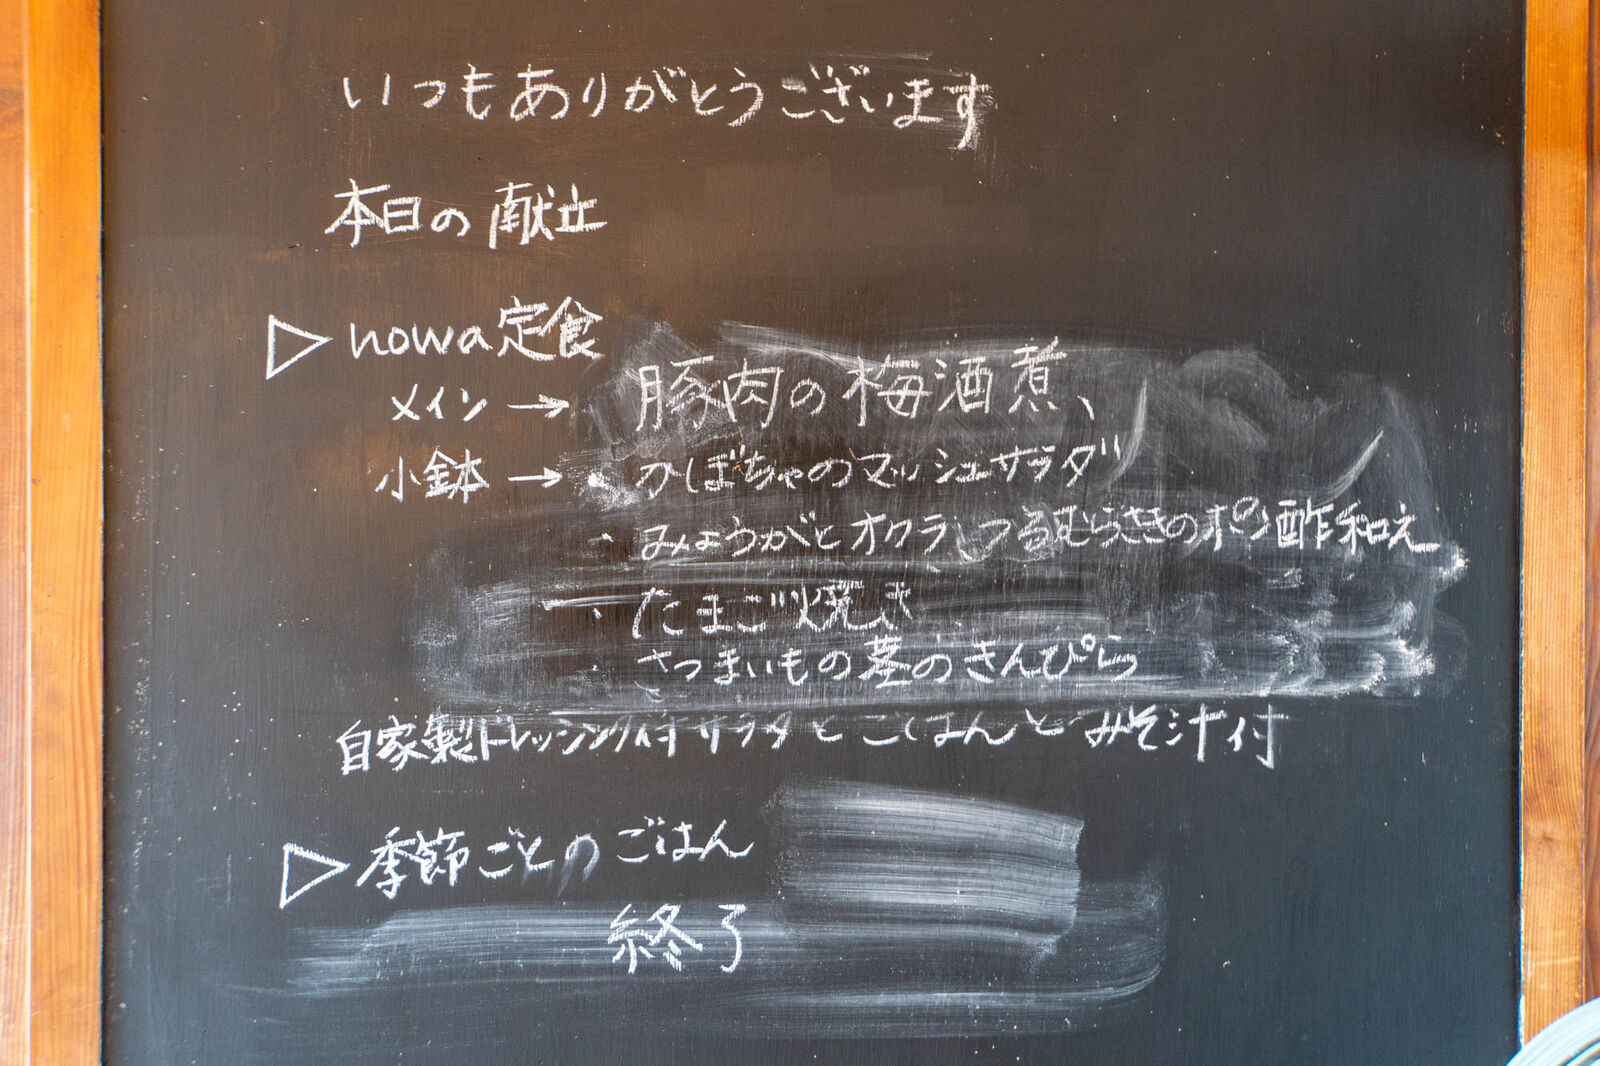 いつもありがとうございます
本日の献立
▷nowa定食
メイン→豚肉の梅酒煮、
小鉢→・かぼちゃのマッシュサラダ
・みょうがとオクラ、つるむらさきのポン酢和え
・たまご焼き
・さつまいもの茎のきんぴら
自家製ドレッシング付サラダとごはんとみそ汁付
▷季節ごとのごはん
終了